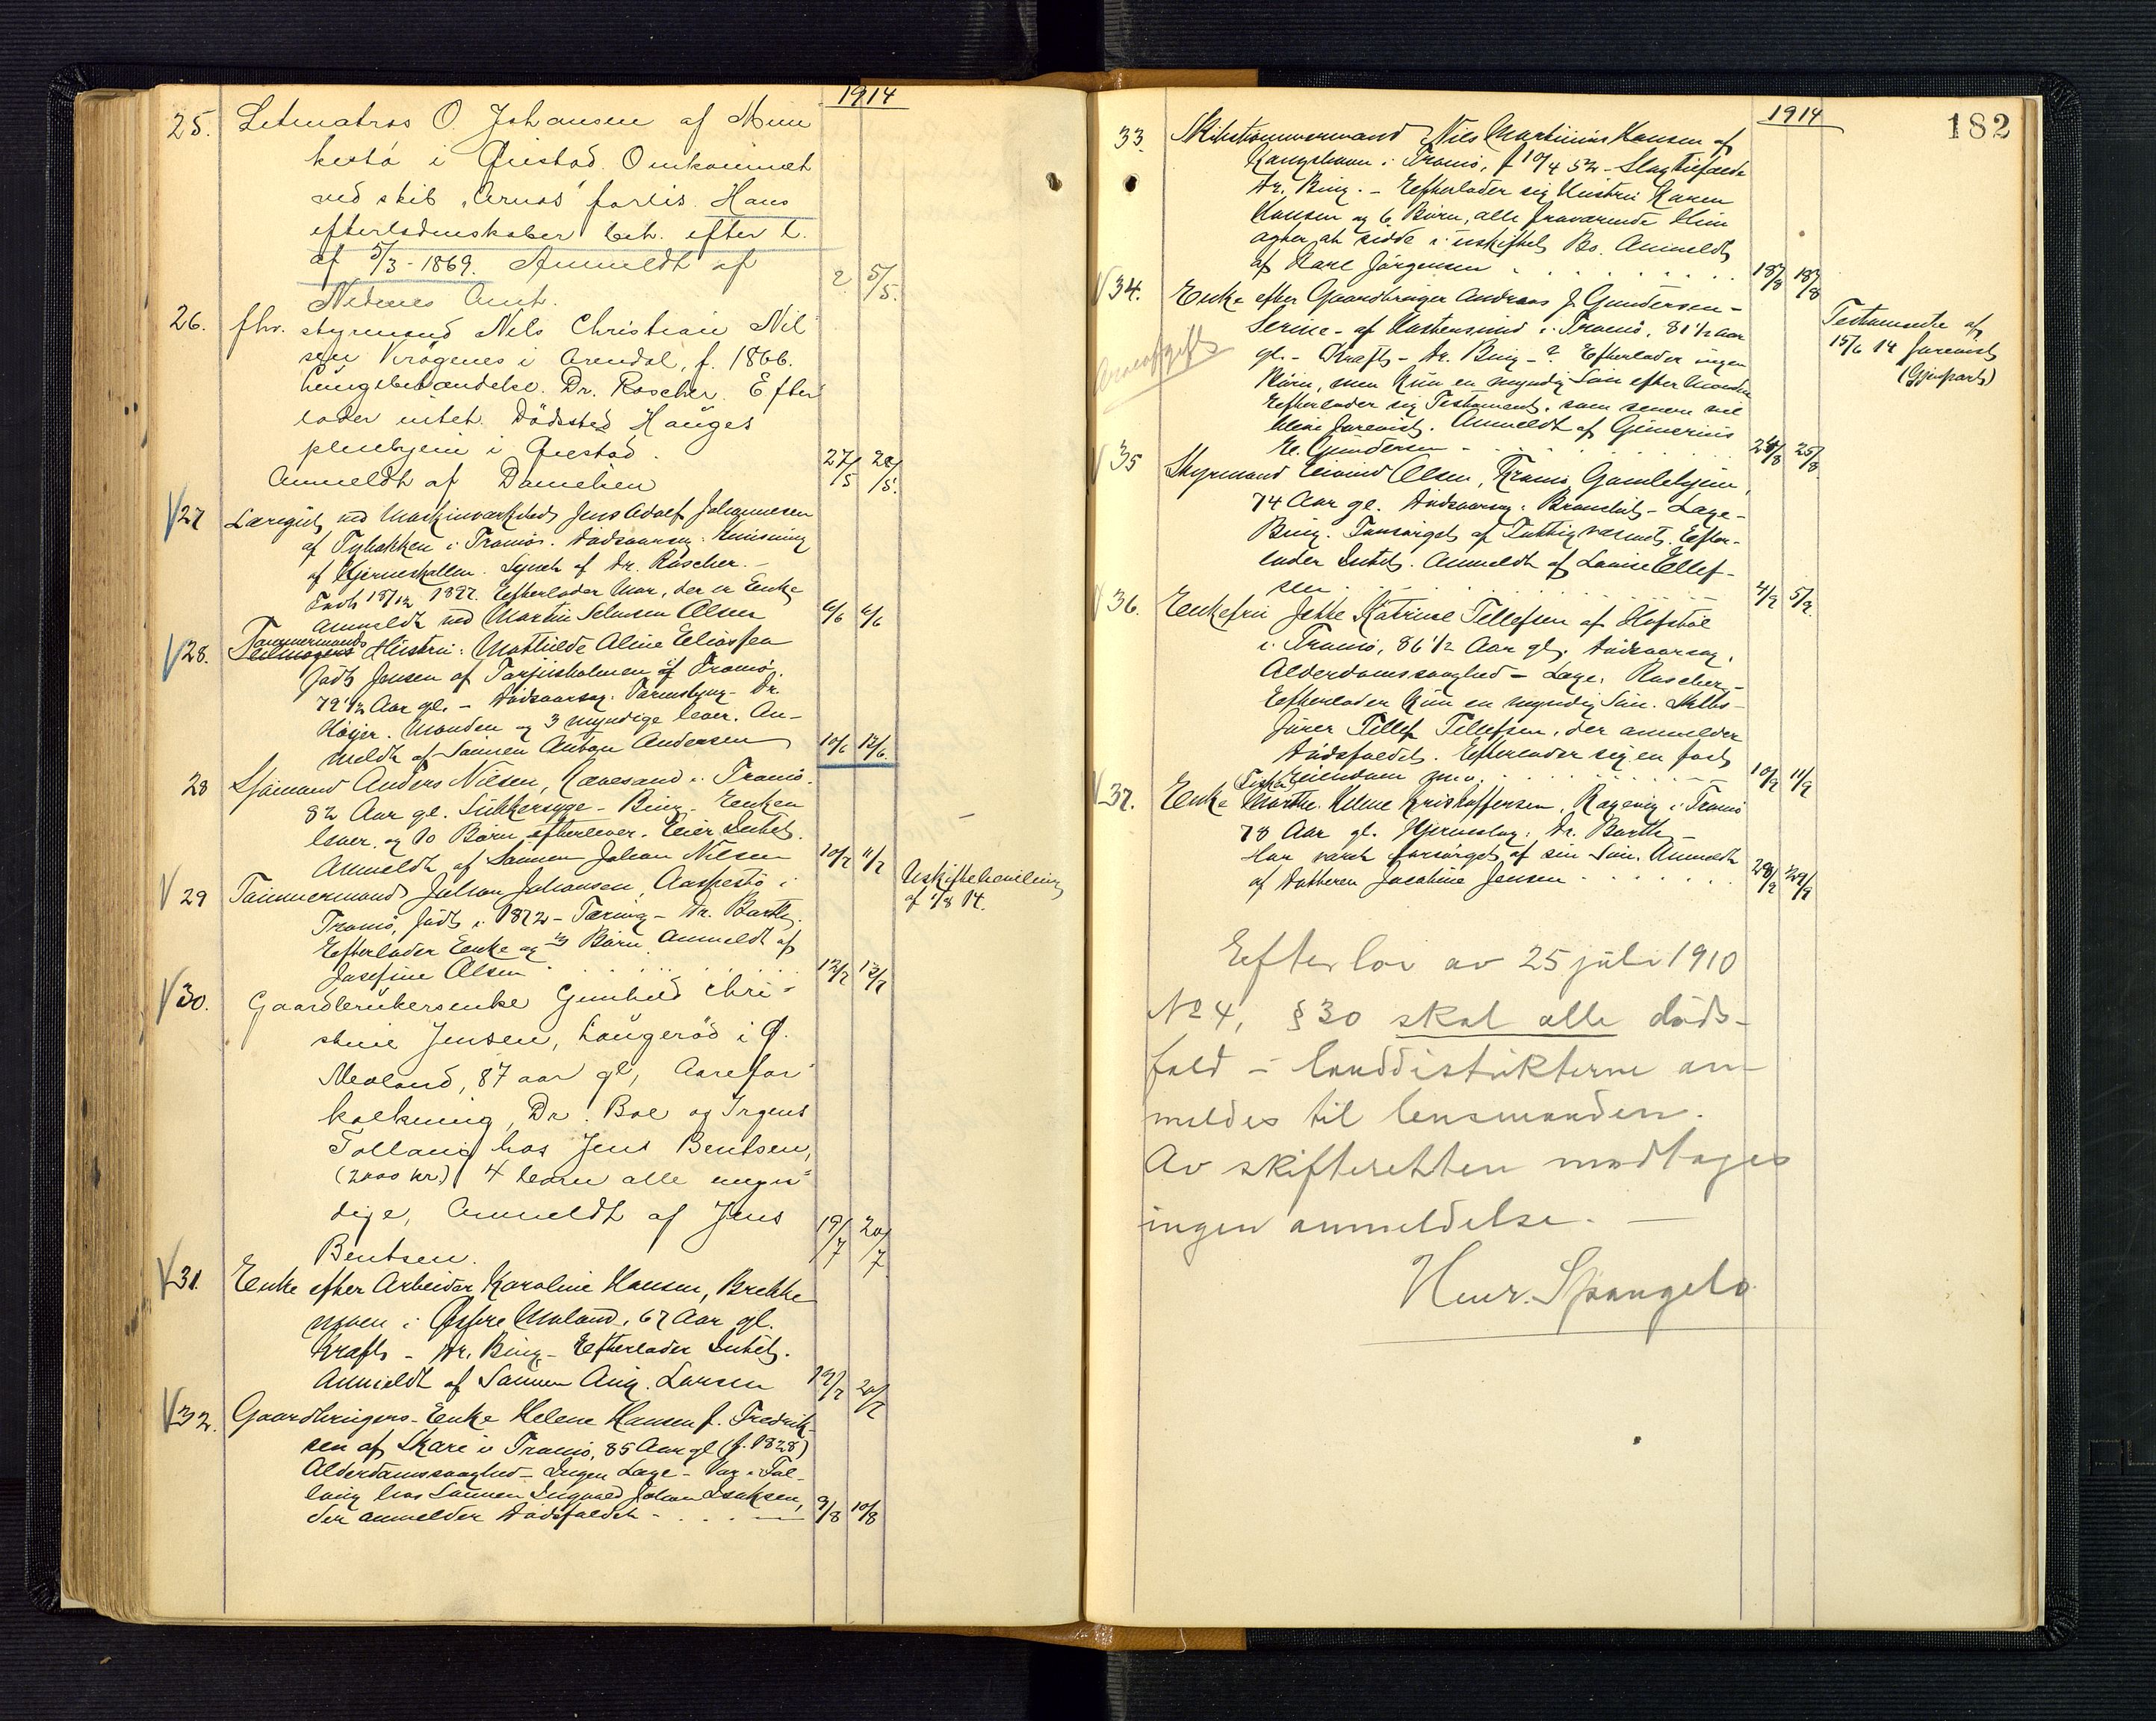 1914
25. Letmatros O. Johansen af Mun
kestø i Øiestad. Omkommet
ved skib „Arnos" forlis. Hans
efterladenskaber beh. efter l.
af 5/3-1869. Anmeldt af
Nedenes Amt.
2 5/5.
26. fhv. styrmand Nils Christian Nil
sen Krøgenes i Arendal, f. 1866.
Lungebetændelse. Dr. Roscher. Efter
lader intet. Dödssted Hauges
pleiehjem i Øiestad.
Anmeldt af Danielsen
27/5 28/5.
27 Læregut ved Maskinværksted Jens Adolf Johannesen
af Tybakken i Tromø. Dødsaarsag: Knusning
af Hjerneskallen. Synet af Dr. Roscher. -
Født 18/12 1897. Efterlader Mor, der er Enke
Anmeldt ved Martin Selmsen Olsen
6/6 6/6
28. Tømmermands Hustru: Mathilde Aline Eliassen
født Jensen af Torjusholmen af Tromø.
79 1/2 Aar gl. - Dødsaarsag: Tarmslyng - Dr.
Høyer. Manden og 3 myndige lever. An-
meldt af Sønnen Anton Andersen
10/6 12/6.
28 Sjømand Anders Nilsen, Kavesand i Tromø.
82 Aar gl. Sukkersyge - Bing - Enken
lever, og 10 Børn efterlever. Eier Intet.
Anmeldt af Sønnen Johan Nilsen
10/7 11/7
29 Tømmermand Julian Johansen, Aaspestø i
Tromø, født i 1872 - Tæring - Dr. Barth.
Efterlader Enke og 3 Børn. Anmeldt af
Josefine Olsen . . . . . .
12/7 13/7
Uskiftebevilling
af 1/8 14.
30. Gaardbrukersenke Gunhild Chri-
stine Jensen, Longerød i Ø.
Moland, 87 aar gl, Aarefor
kalkning, Dr: Boe og Irgens
Follaug hos Jens Bentsen,
(2000 kr.) 4 børn alle myn-
dige, Anmeldt af Jens
Bentsen.
19/7 20/7
31. Enke efter Arbeider Karoline Hansen, Brekke
moen i Østre Moland, 67 Aar gl.
Kræft - Dr. Bing - Efterlader Intet.
Anmeldt af Sønnen Aug. Larsen
19/7 20/7
32. Gaardbrugers-Enke Helene Hansen f. Fredrik-
sen af Skare i Tromø, 85 Aar gl (f. 1828)
Alderdomssvaghed - Ingen Læge - Var i Fol-
laug hos Sønnen Ingvald Johan Isaksen,
der anmelder Dødsfaldet - . . .
9/8 10/8
182
1914
33. Skibstømmermand Nils Martinius Hansen af
Kongshavn i Tromø, f 10/4 52 - Slagtilfælde
Dr. Bing. - Efterlader sig Hustru Karen
Hansen og 6 Børn, alle fraværende. Hun
agter at sidde i uskiftet Bo. Anmeldt
af Karl Jørgensen . . . . . .
18/8 18/8
34. Enke efter Gaardbruger Andreas J. Gundersen -
Serine - af Hastensund i Tromø, 81 1/2 aar
gl. - Kræft - Dr. Bing - ? Efterlader ingen
Børn, men kun en myndig Søn efter Manden
Efterlader sig Testament, som senere vil
blive forevist. Anmeldt af Gunerius
E. Gundersen - . . . . .
24/8 25/8
Arveafgift
Testamente af
15/6 14 forevist
(Gjenpart)
35 Styrmand Eivind Olsen, Tromø Gamlehjem,
74 Aar gl. Dødsaarsag: Bronchit - Læge -
Bing. Forsørget af Fattigvæsnet. Efter-
lader Intet. Anmeldt af Louise Ellef-
sen - . . . . . .
4/9 5/9.
36. Enkefru Jakke Katrine Tellefsen af Hofstøl
i Tromø, 86 1/2 Aar gl. Dødsaarsag:
Alderdomssvaghed - Læge: Roscher -
Efterlader kun en myndig Søn. Skibs-
fører Tellef Tellefsen, der anmelder
Dødsfaldet. Efterlader sig en fast
Eiendom m.v. . . . . .
10/9 11/9
37. Enke Marthe Helene Kristoffersen, Rægevig i Tromø
78 Aar gl. Hjerneslag: Dr. Barth -
Har været forsørget af sin Søn. Anmeldt
af Datteren Josefine Jensen . . . . . .
28/9 29/9
Efter lov av 25 juli 1910
No 4, § 30 skal alle døds-
fald i landdistrikterne an-
meldes til lensmanden.
Av skifteretten modtages
ingen anmeldelse. -
Henr. Spangelo